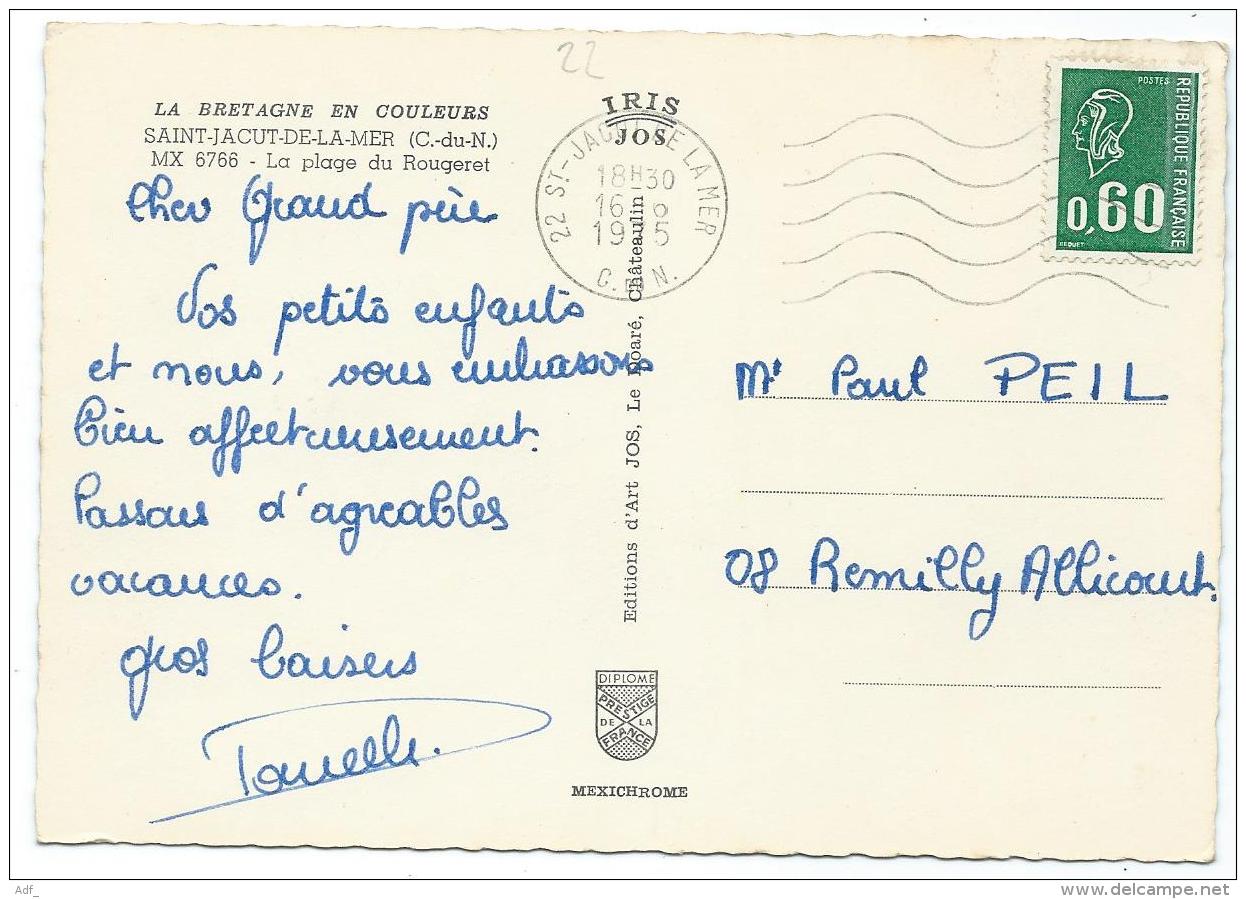 22
LA BRETAGNE EN COULEURS
SAINT-JACUT-DE-LA-MER (C.-du-N.)
MX 6766 - La plage du Rougeret
Cher Grand père
Vos petits enfants
et nous, vous embrassons
bien affectueusement.
Passons d'agreables
vacances.
Gros baisers
IRIS
JOS
22 ST-JACUT DE LA MER
18H30
16
1975
C. D N.
Editions d'Art JOS, Le Doaré, Châteaulin
DIPLOME
PRESTIGE
DE LA
FRANCE
MEXICHROME
POSTES
REPUBLIQUE FRANÇAISE
0,60
BEQUET
Mr Paul PEIL
08 Remilly Allicourt.
Adf_
www.delcampe.net